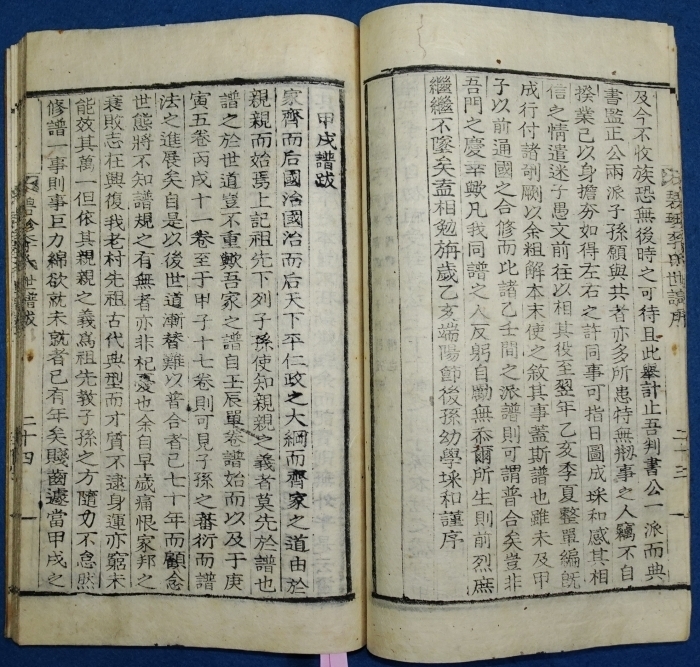 及今不收族恐無後時之可待且此擧計止吾判書公一派而典
書監正公兩派子孫願與共者亦多所患特無刱事之人竊不自
揆業已以身擔夯如得左右之許同事可指日圖成埰和感其相
信之情遣迷子愚文前往以相其役至翌年乙亥季夏整單編旣
成行付諸剞劂以余粗解本末使之敘其事蓋斯譜也雖未及甲
子以前通國之合修而比諸乙壬間之派譜則可謂普合矣豈非
吾門之慶幸歟凡我同譜之人反躬自勵無忝爾所生則前烈庶
繼繼不墜矣盍相勉旃歲乙亥端陽節後孫幼學埰和謹序
二十三
甲戌譜跋
家齊而后國治國治而后天下平仁政之大綱而齊家之道由於
親親而始焉上記祖先下列子孫使知親親之義者莫先於譜也
譜之於世道豈不重歟吾家之譜自壬辰單卷譜始而以及于庚
寅五卷丙戌十一卷至于甲子十七卷則可見子孫之蕃衍而譜
法之進展矣自是以後世道漸替難以普合者已七十年而顧念
世態將不知譜規之有無者亦非杞憂也余自早歲痛恨家邦之
衰敗志在興復我老村先祖古代典型而才質不遠身運亦窮未
能效其萬一但依其親親之義爲祖先教子孫之方隨力不怠然
修譜一事則事巨力綿欲就未就者已有年矣賤齒遽當甲戌之
世譜跋
二十四